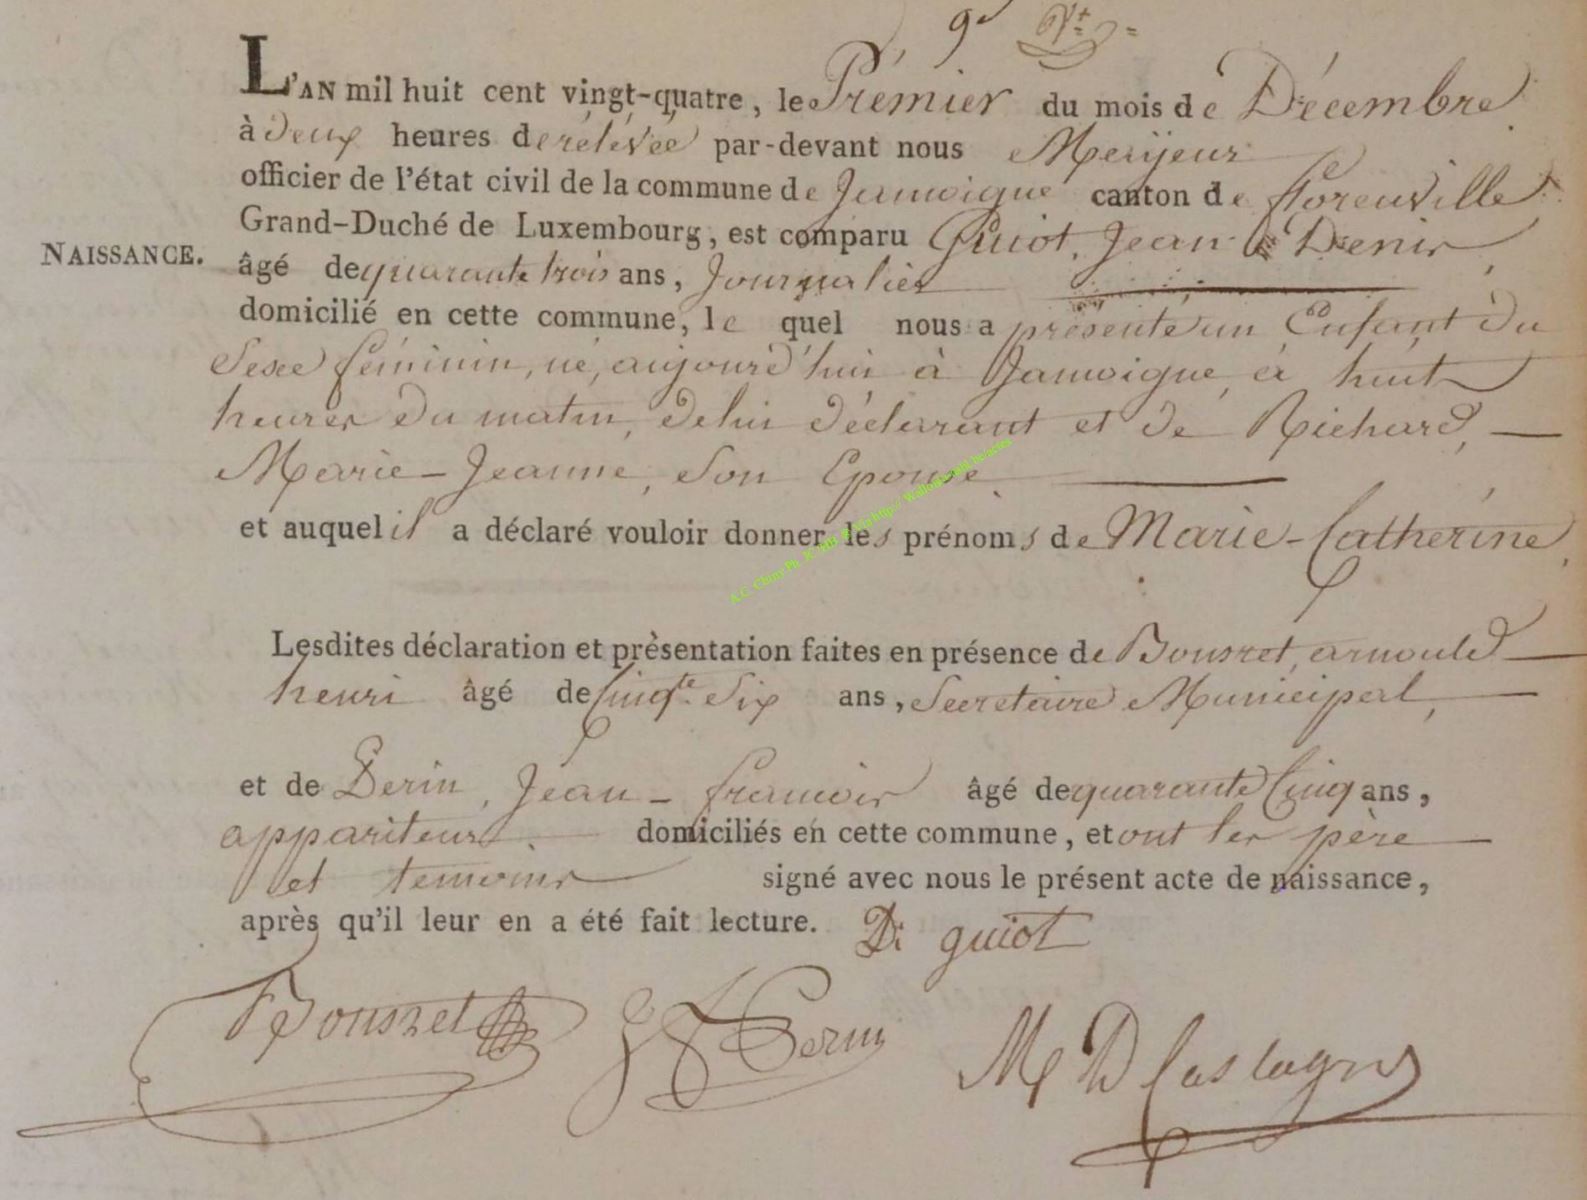 9e
L'AN mil huit cent vingt-quatre, le Prémier du mois de Décembre
à deux heures de rélévée par-devant nous Meyjeur
officier de l'état civil de la commune de Jamoigne canton de florenville
Grand-Duché de Luxembourg, est comparu Guiot, Jean Denis,
NAISSANCE.
âgé de quarante trois ans, Journalier
domicilié en cette commune, le quel nous a présenté un Enfant du
Sexe féminin, né, aujourd'hui à Jamoigne, à huit
heures du matin, de lui déclarant et de Richard,
Marie-Jeanne, Son Epouse
et auquel il a déclaré vouloir donner les prénoms de Marie-Catherine,
Lesdites déclaration et présentation faites en présence de Bousret, arnould
henri âgé de Cinqte Six ans, Secretaire Municipal,
et de Perin, Jean-françois âgé de quarante Cinq ans,
appariteur. domiciliés en cette commune, et ont les père
et temoins signé avec nous le présent acte de naissance,
après qu'il leur en a été fait lecture. D. guiot
Bousret J F Perin M D Castagne